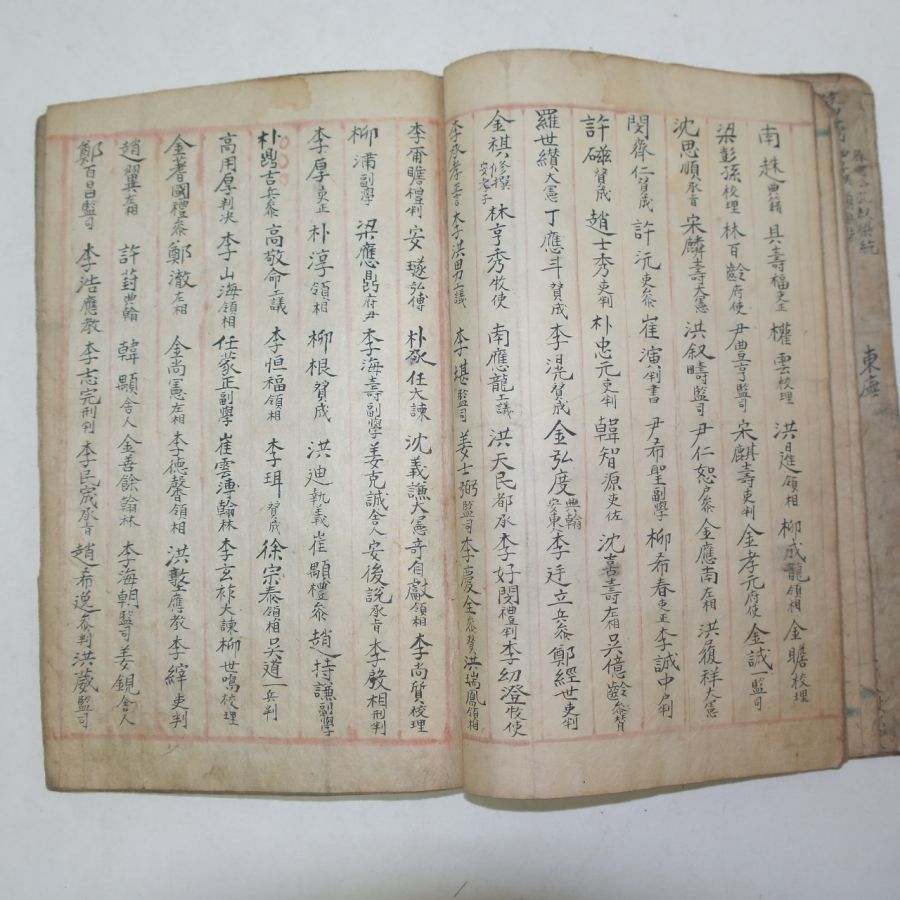 東廡
南趎典籍 具壽福吏正 權雲校理 洪暹領相 柳成龍領相 金瞻校理
梁彭孫校理 林百齡府使 尹豊亨監司 宋麒壽吏判 金孝元府使 金誠一監司
沈思順承旨 宋麟壽大憲 洪叙疇監司 尹仁恕戶叅 金應南左相 洪履祥大憲
閔齊仁贊成 許沆吏叅 崔演判書 尹希聖副學 柳希春吏正 李誠中戶判
許磁贊成 趙士秀吏判 朴忠元吏判 韓智源吏佐 沈喜壽左相 吳億齡叅贊
羅世纉大憲 丁應斗贊成 李滉贊成 金弘度典翰 安東 李廷立兵叅 鄭經世吏判
金祺修撰 安老子 林亨秀牧使 南應龍工議 洪天民都承 李好閔禮判 李幼澄牧使
李承孝正言 李洪男工議 李堪監司 姜士弼監司 李慶全叅贊 洪瑞鳳領相
李爾瞻禮判 安璲弘博 朴啟 任大諫 沈義謙大憲 奇自獻領相 李尚質校理
柳㵗副學 梁應鼎府尹 李海壽副學 姜克誠舍人 安後說承旨 李殷相刑判
李厚吏正 朴淳領相 柳根贊成 洪迪執義 崔顯禮叅 趙持謙副學
朴鼎吉兵叅 高敬命工議 李恒福領相 李珥贊成 徐宗泰領相 吳道一兵判
高用厚判決 李山海領相 任蒙正副學 崔雲溥翰林 李玄祚大諫 柳世鳴校理
金蓍國禮叅 鄭澈左相 金尚憲左相 李德馨領相 洪𣿰應敎 李縡吏判
趙翼左相 許葑典翰 韓顯舍人 金善餘翰林 李海朝監司 姜鋧舍人
鄭百昌監司 李浩應敎 李志完刑判 李民宬承旨 趙希逸叅判 洪葳監司